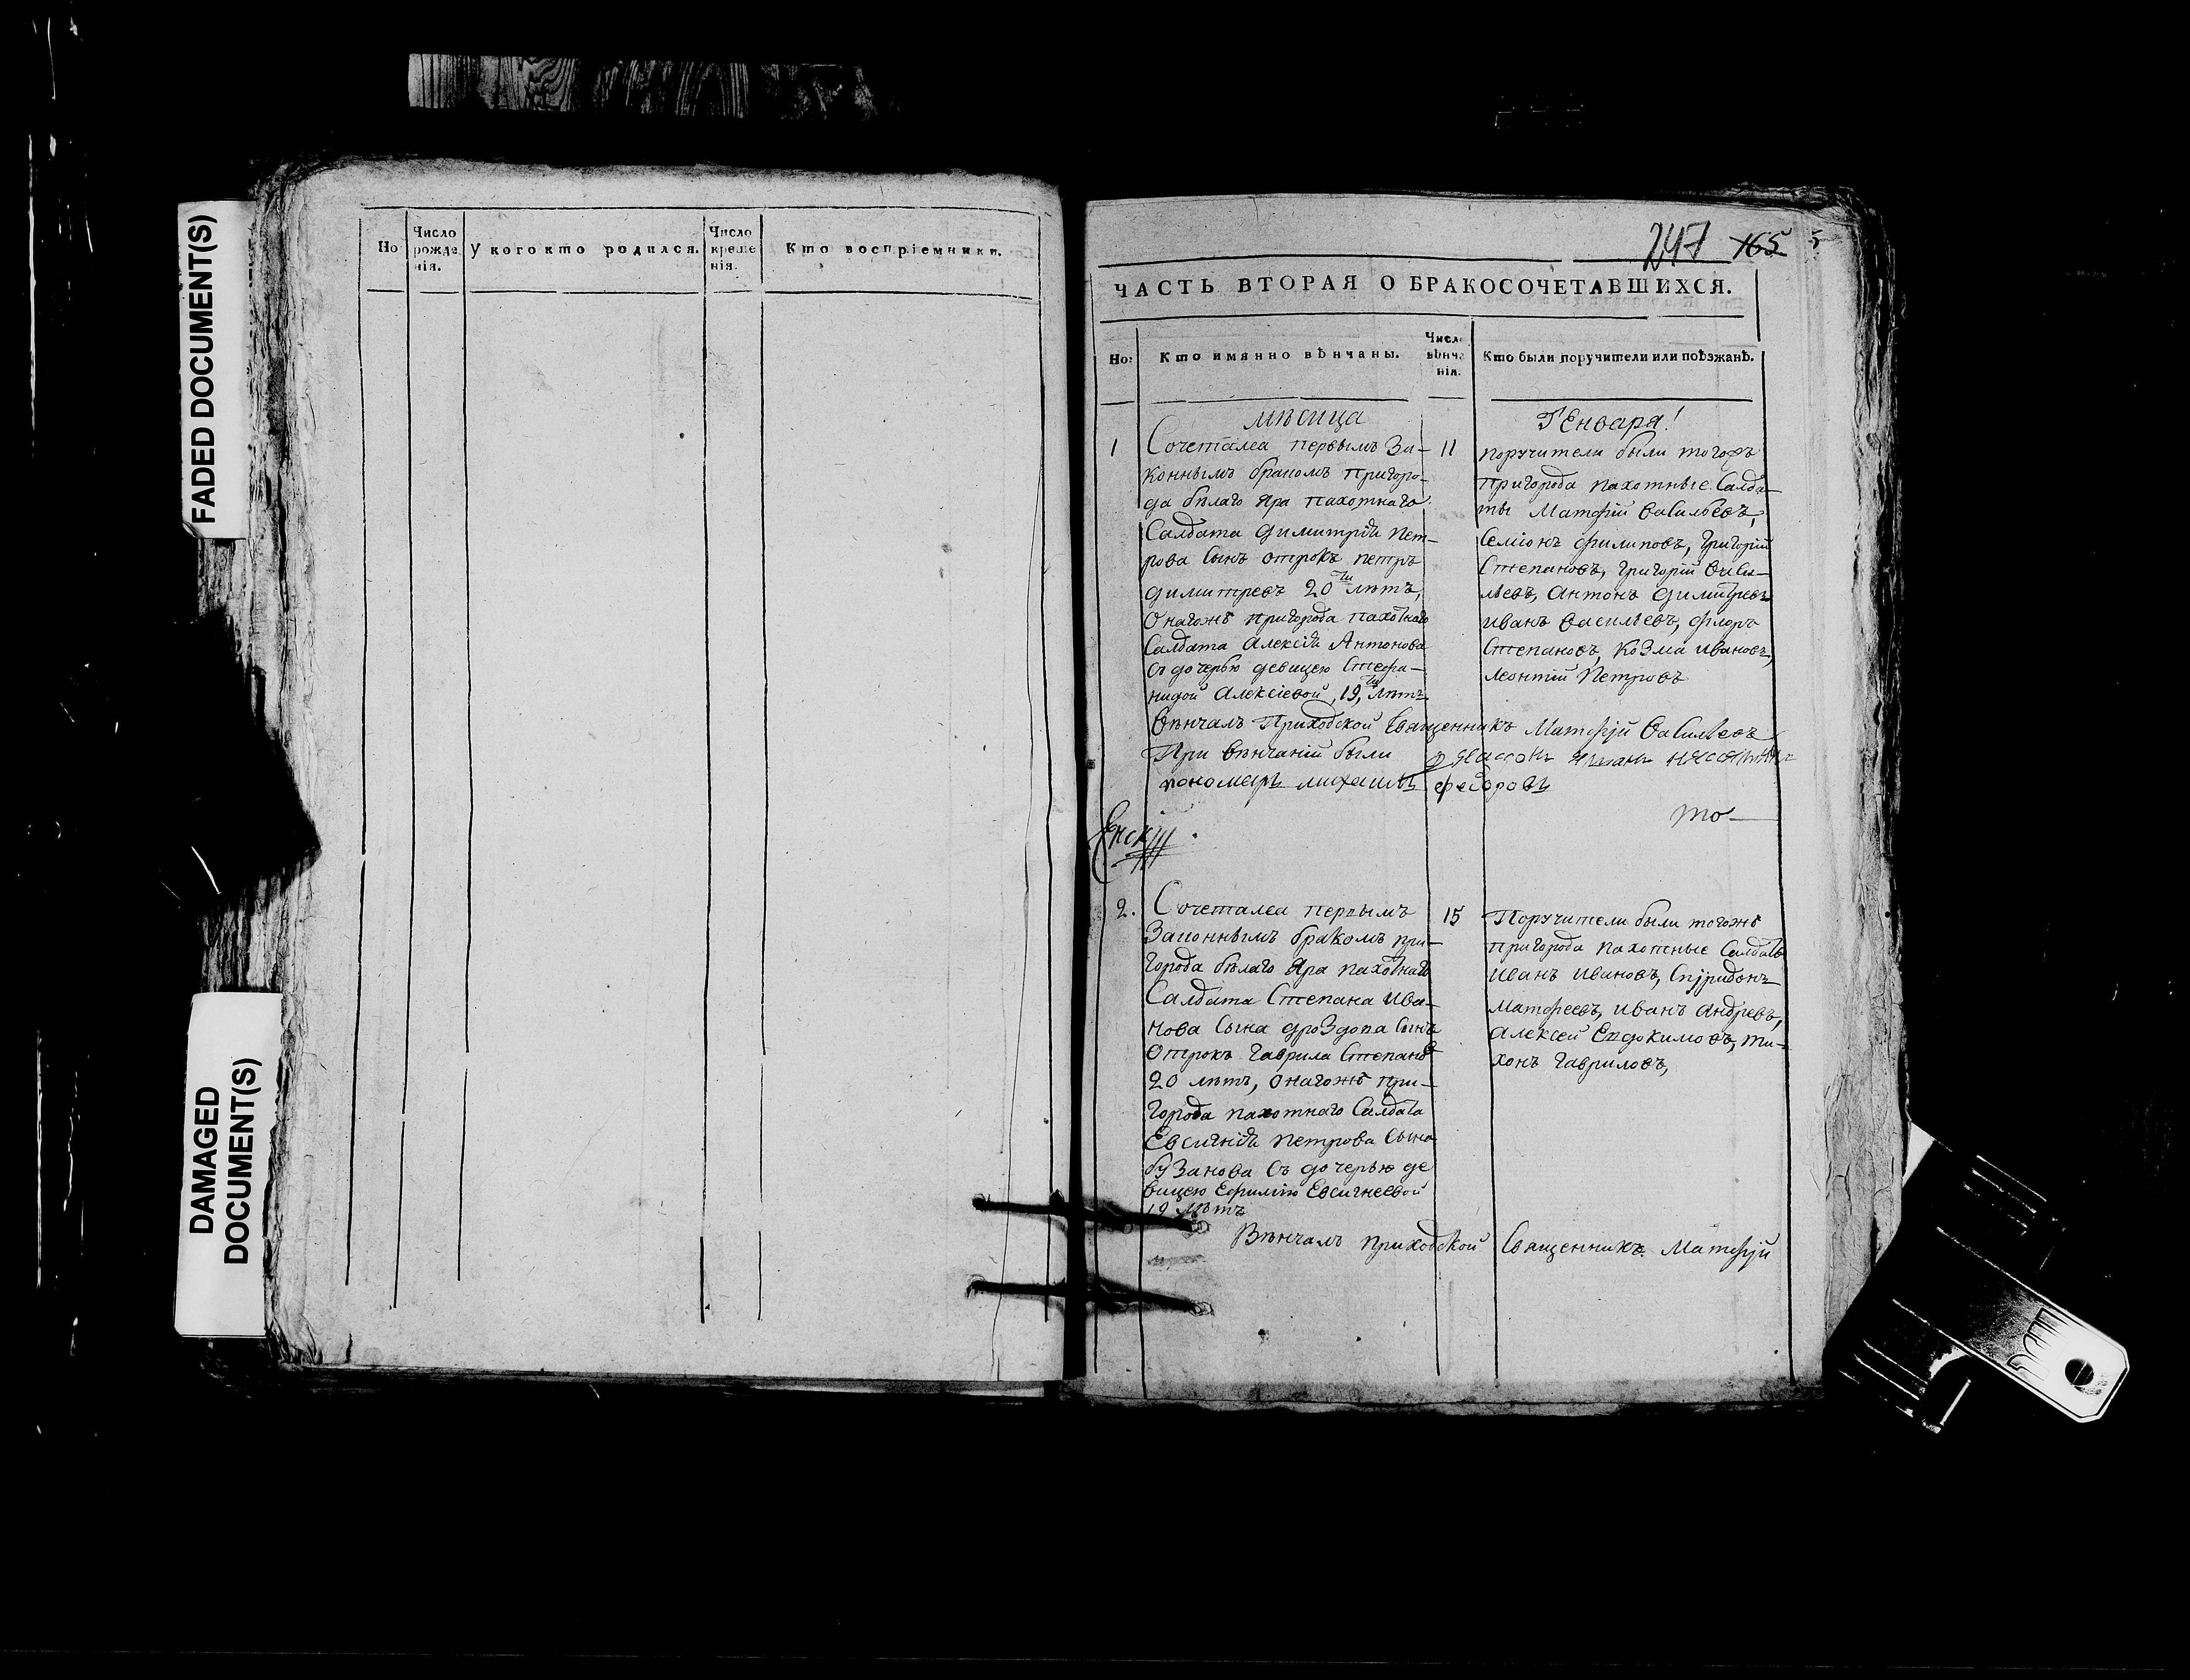 FADED DOCUMENT(S)
DAMAGED
DOCUMENT(S)
Но
Число
рожде
нія.
У кого кто родился.
Число
креще
нія.
Кто воспріемники.
247 165
5
ЧАСТЬ ВТОРАЯ О БРАКОСОЧЕТАВШИХСЯ.
Но:
Кто имянно вѣнчаны.
Число
вѣнча
нія.
Кто были поручители или поѣзжанѣ.
мѣсица
Генваря!
1
Сочетался первымъ За-
коннымъ бракомъ пригоро-
да бѣлаго Яра пахотнаго
Салдата Димитрія Пет-
рова Сынъ отрокъ петръ
димитревъ 20 лѣтъ,
Онагожъ пригорода пахотнаго
Салдата Алексія Антонова
съ дочерью девицею Стефа-
нидой Алексіевой, 19, лѣтъ
11
поручители были тогожъ
пригорода пахотные Салда-
ты Матфій Васильевъ,
Семіонъ филиповъ, Григорій
Степановъ, григорій Васи-
льевъ, Антонъ Димитревъ
иванъ Васильевъ, флоръ
Степановъ, Козма ивановъ,
леонтій Петровъ
Вѣнчалъ Приходской Священникъ Матфій Васильевъ
При вѣнчаніи были
пономаръ михаилъ федоровъ
то
2.
Сочетался первымъ
Законнымъ бракомъ при-
города бѣлаго Яра пахотнаго
Салдата Степана Ива-
нова Сына дроздова Сынъ
Отрокъ Гаврила Степановъ
20 лѣтъ, онагожъ при-
города пахотнаго Салдата
Евсигнія петрова Сына
бузанова Съ дочерью де
вицею Ефиміею Евсигнеевой
19 лѣтъ
15
Поручители были тогожъ
пригорода пахотные Салдаты
Иванъ Ивановъ, Спѵридонъ
Матфеевъ, иванъ Андревъ,
Алексей Евдокимовъ, ти-
хонъ Гавриловъ,
Вѣнчалъ приходской Священникъ Матфій